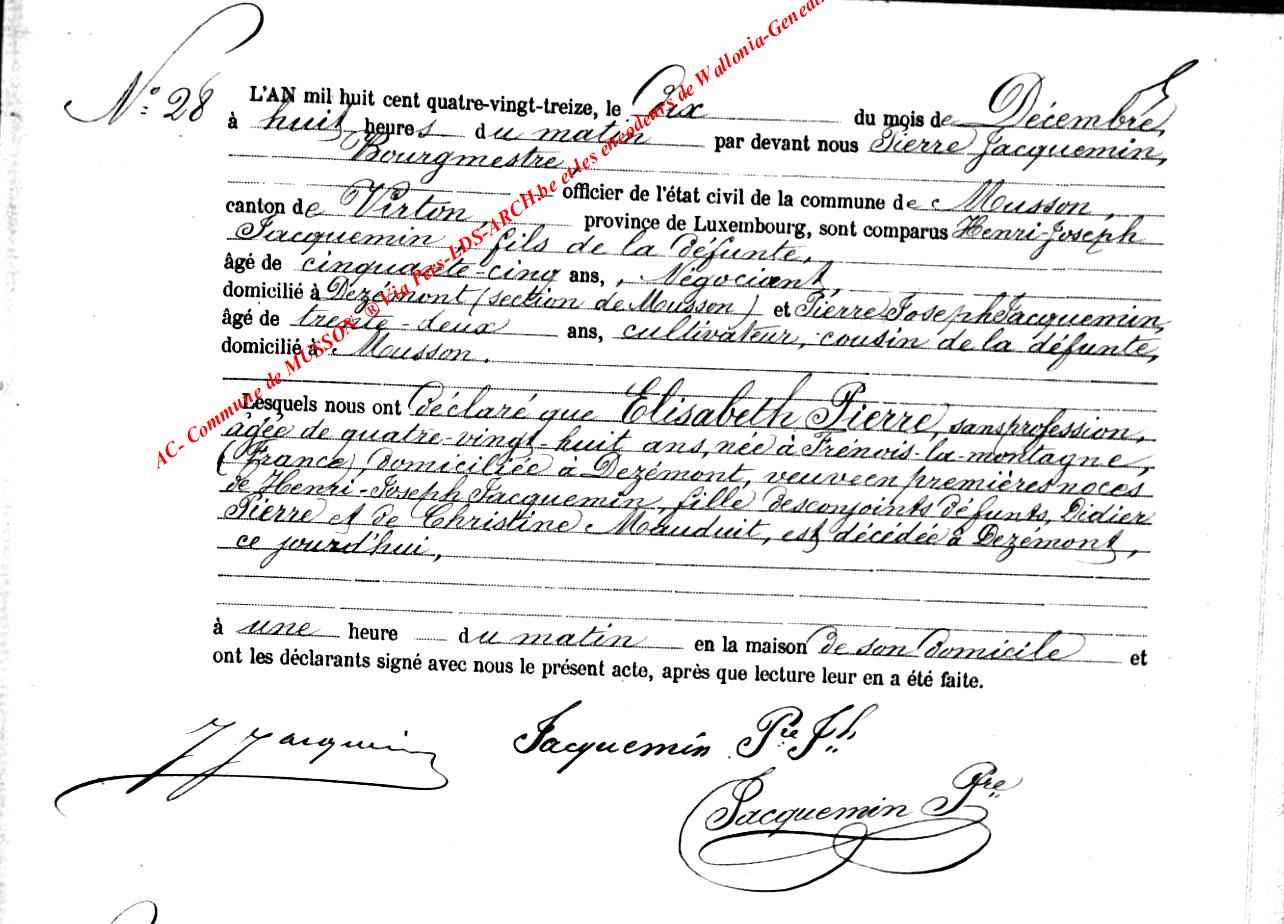 N° 28
L'AN mil huit cent quatre-vingt-treize, le Dix du mois de Décembre,
à huit heures du matin par devant nous Pierre Jacquemin,
Bourgmestre,
officier de l'état civil de la commune de Musson,
canton de Virton, province de Luxembourg, sont comparus Henri-Joseph
Jacquemin, fils de la défunte,
âgé de cinquante-cinq ans, Négociant,
domicilié à Dezémont (section de Musson) et Pierre Joseph Jacquemin,
âgé de trente-deux ans, cultivateur, cousin de la défunte,
domicilié à Musson.
Lesquels nous ont déclaré que Elisabeth Pierre, sans profession,
âgée de quatre-vingt-huit ans, née à Frénois-la-montagne,
(France), domiciliée à Dezémont, veuve en premières noces
de Henri-Joseph Jacquemin, fille des conjoints défunts, Didier
Pierre et de Christine Mauduit, est décédée à Dezémont,
ce jourd'hui,
à une heure du matin en la maison de son domicile et
ont les déclarants signé avec nous le présent acte, après que lecture leur en a été faite.
J Jacquemin Jacquemin Pre Jh
Jacquemin Pre
AC- Commune de MUSSON ® Via Pers-LDS-ARCH.be et les encodeurs de Wallonia-Geneal